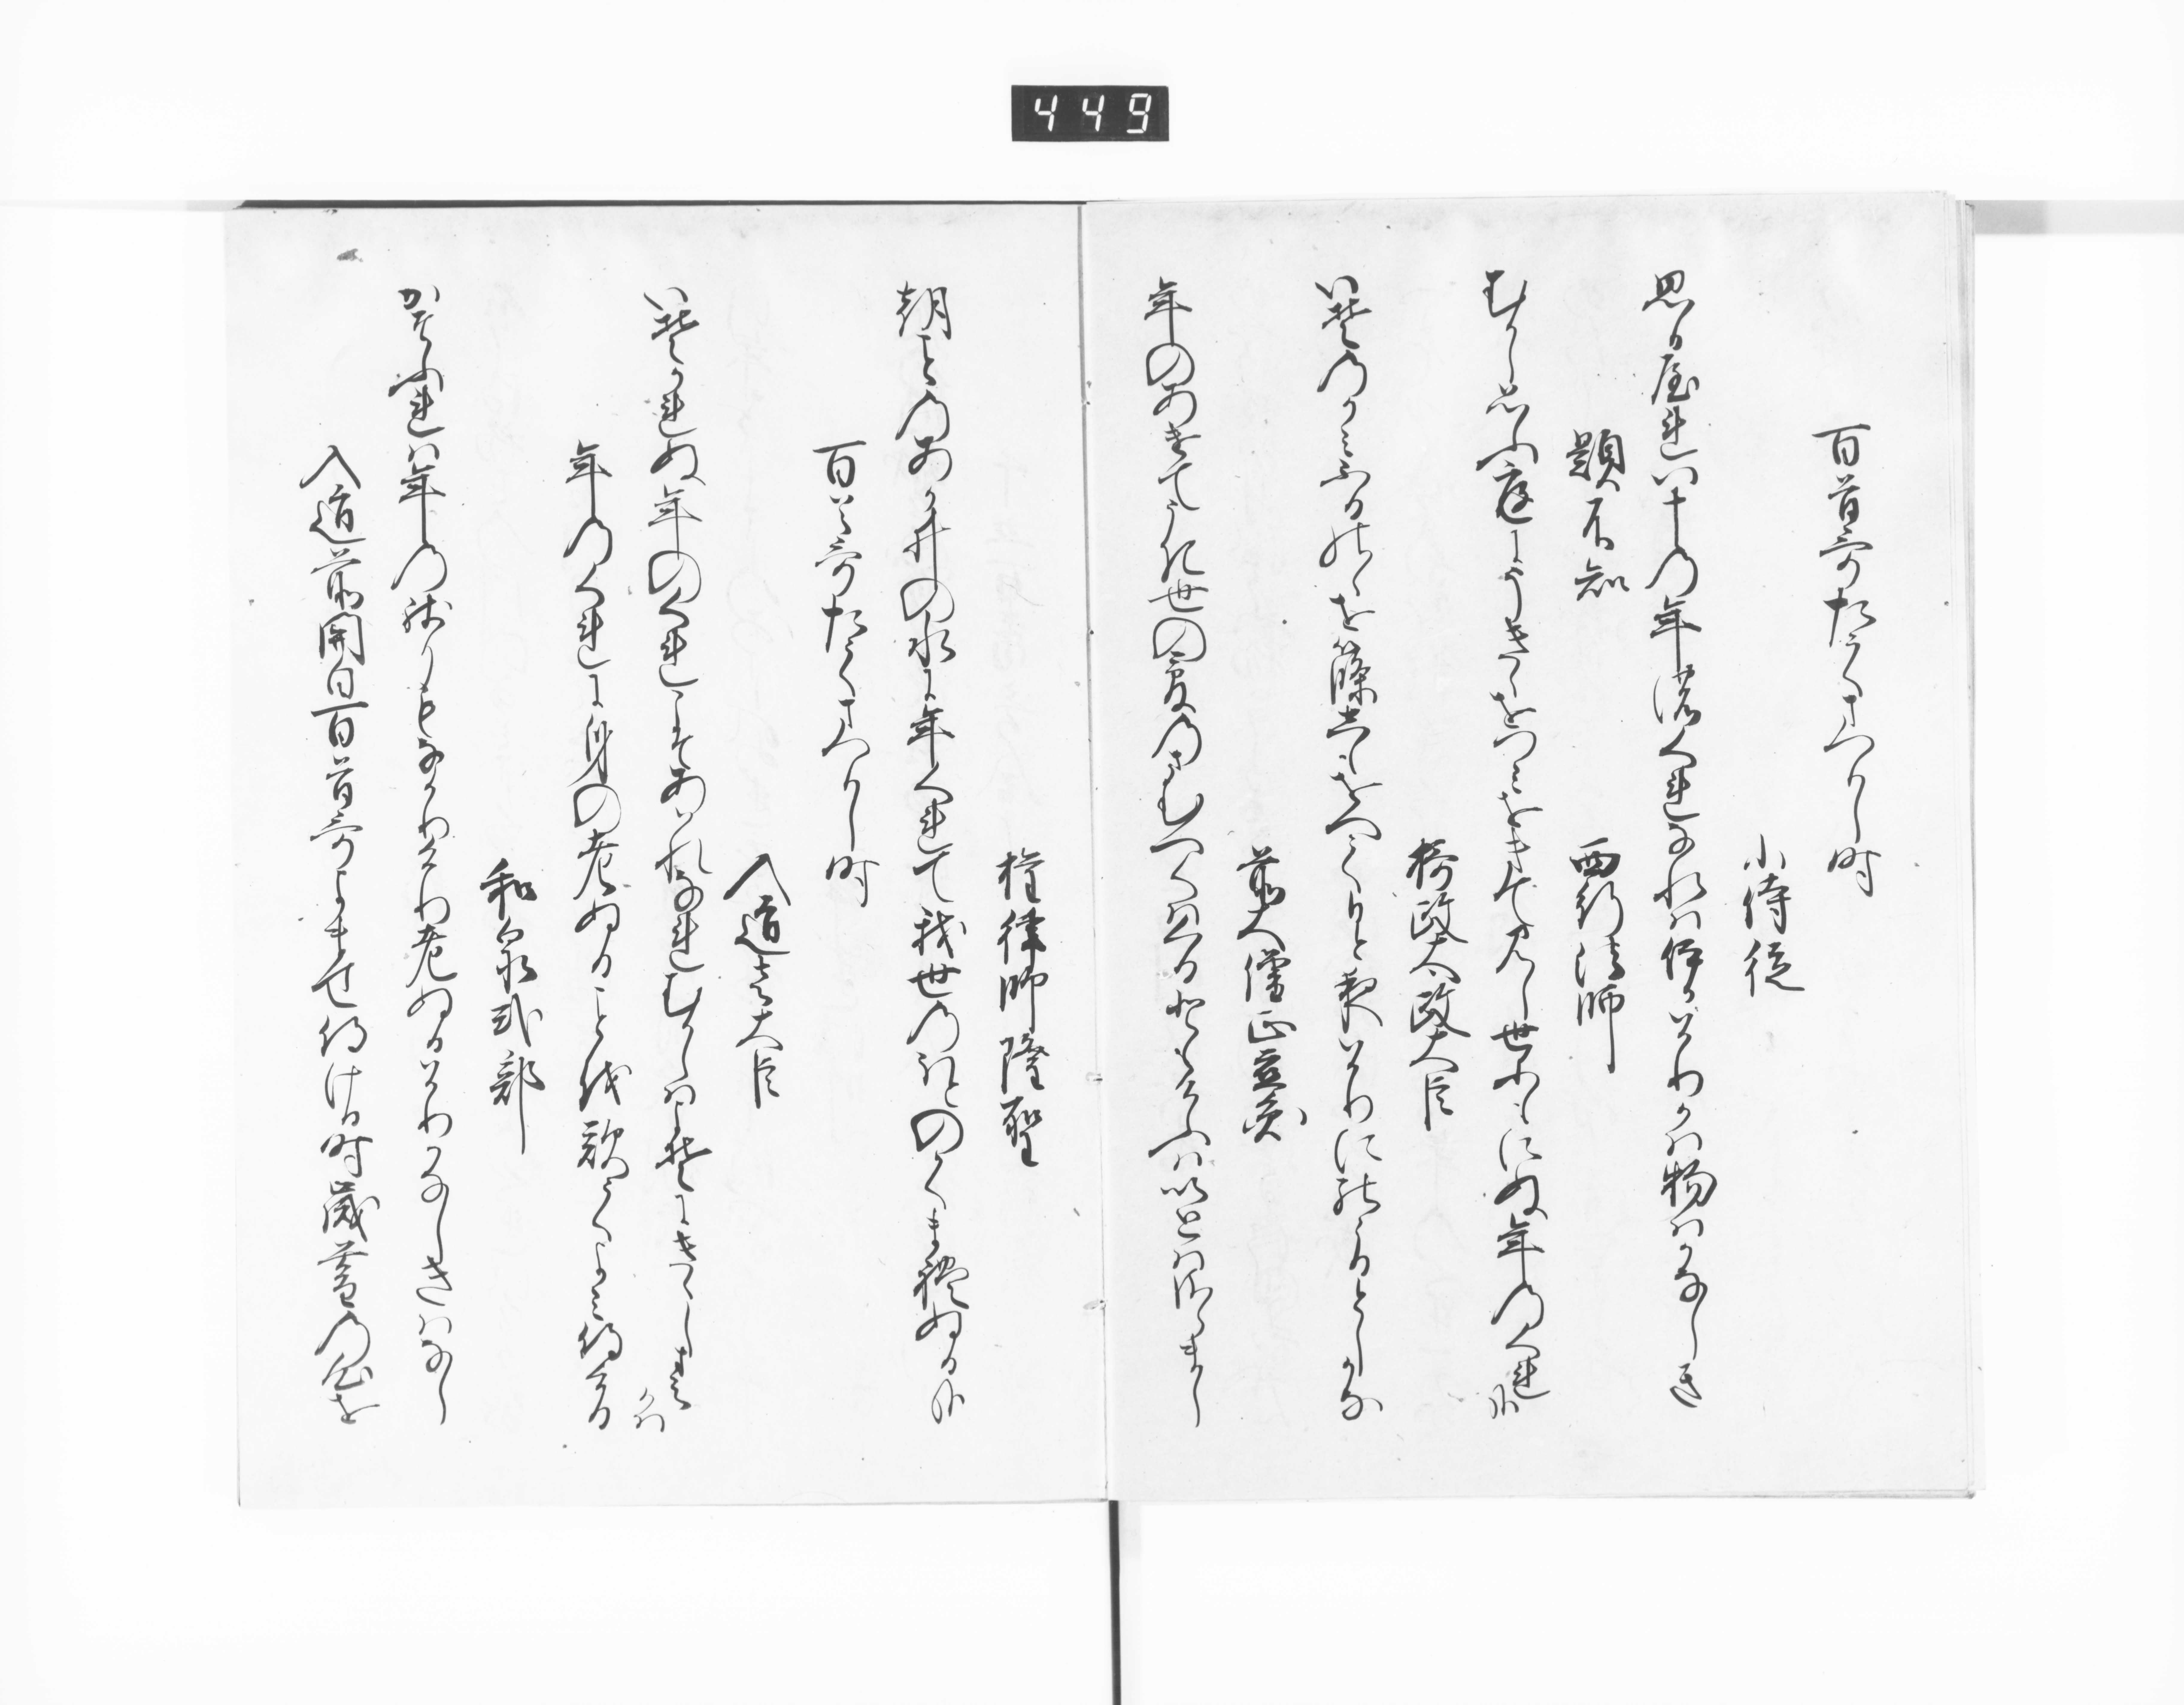 449
百首哥たてまつりし時
小侍従
思ひやれ八十の年のくれなれはいかはかりかは物はかなしき
題不知
西行法師
むかし思ふ庭にうき木をつみをきて見し世にもにぬ年のくれ哉
摂政太政大臣
いそのかみふる野のを篠霜をへてひと夜はかりにのこるとしかな
前大僧正慈円
年のあけてうき世の夢のさむへくはくるともけふはいとはさらまし
権律師隆聖
朝ことのあか井の水に年くれて我世のほとのくまれぬる哉
百首哥たてまつりし時
入道左大臣
いそかれぬ年のくれこそあはれなれむかしはよそにきゝし春かは
年のくれに身の老ぬることを歎てよみ侍ける
和泉式部
かそふれは年の残りもなかりけり老ぬるはかりかなしきはなし
入道前関白百首哥よませ侍ける時歳暮の心を